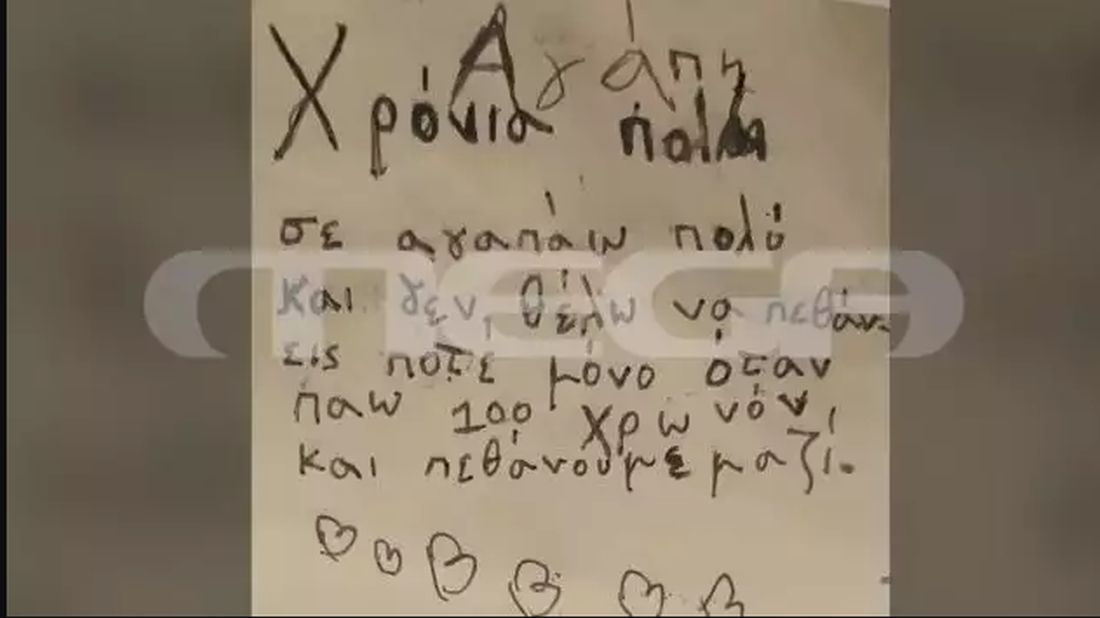 Αγάπη
Χρόνια πολλα
σε αγαπάω πολύ
και δεν θέλω να πεθάν-
εις ποτέ μόνο όταν
παω 100 χρωνόν
και πεθάνουμε μαζί.
MEGA